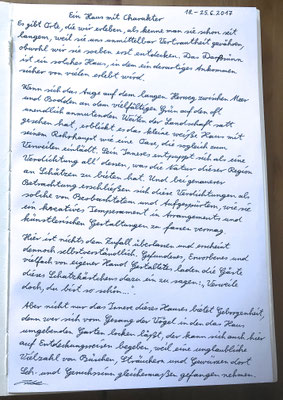 18.-25.6.2017
Ein Haus mit Charakter
Es gibt Orte, die wir erleben, als kenne man sie schon seit
langem, weil sie uns unmittelbar Vertrautheit gewähren,
obwohl wir sie soeben erst entdecken. Das
ist ein solches Haus, in dem ein derartiges Ankommen
sicher von vielen erlebt wird.
Wenn sich das Auge auf dem langen Herweg zwischen Meer
und Bodden an dem vielfältigen Grün auf den oft
unendlich anmutenden Weiten der Landschaft satt
gesehen hat, erblickt es das kleine weiße Haus mit
seinem Rohrhaupt wie eine Oase, die sogleich zum
Verweilen einlädt. Sein Inneres entpuppt sich als eine
Verdichtung all' dessen, was die Natur dieser Region
an Schätzen zu bieten hat. Und bei genauerer
Betrachtung erschließen sich diese Verdichtungen als
solche von Beobachtetem und Aufgespürtem, wie sie
ein kreatives Temperament in Arrangements und
künstlerischen Gestaltungen zu fassen vermag.
Hier ist nichts dem Zufall überlassen und erscheint
dennoch selbstverständlich. Gefundenes, Erworbenes und
vielfach von eigener Hand Gestaltetes laden die Gäste
dieses Schatzkästchens dazu ein zu sagen: „Verweile
doch, du bist so schön..."
Aber nicht nur das Innere dieses Hauses bietet Geborgenheit,
denn wer sich vom Gesang der Vögel in den das Haus
umgebenden Garten locken läßt, der kann sich auch hier
auf Entdeckungsreisen begeben, weil eine unglaubliche
Vielzahl von Büschen, Sträuchern und Gewürzen dort
Seh- und Geruchssinn gleichermaßen gefangen nehmen.